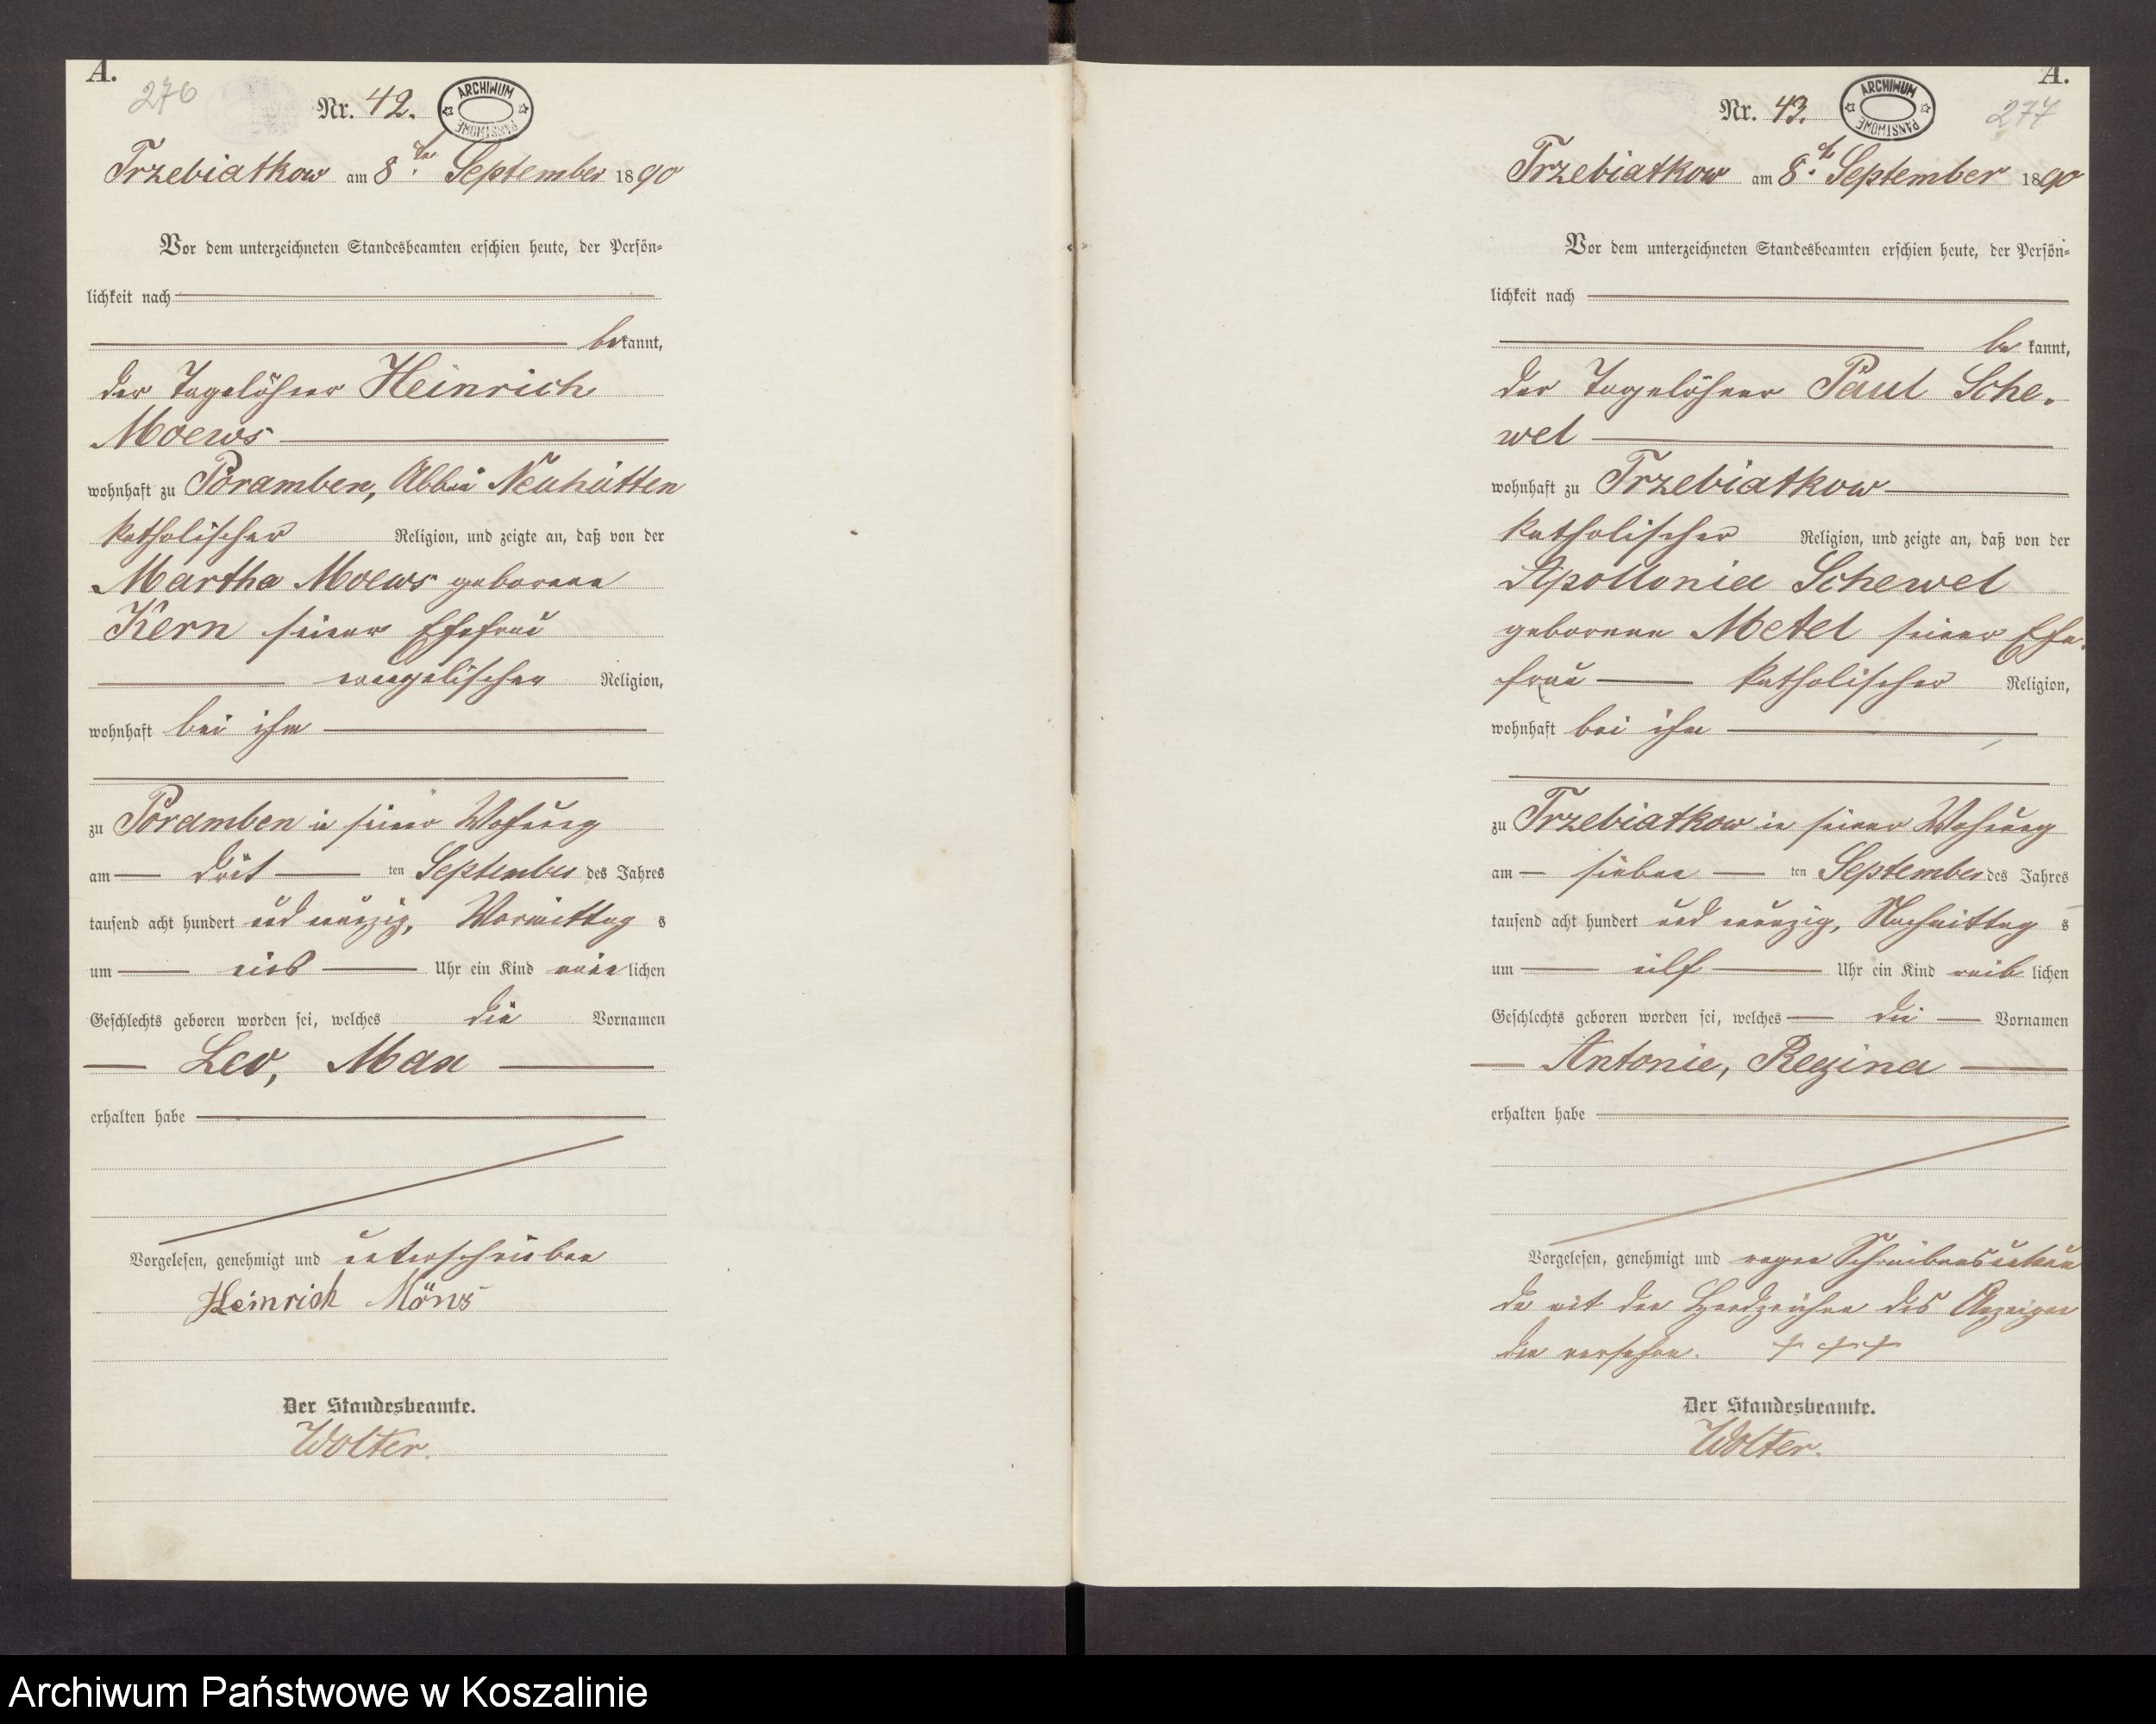 A.
276
Nr. 42.
ARCHIWUM PAŃSTWOWE
Trzebiatkow am 8ten September 1890
Vor dem unterzeichneten Standesbeamten erschien heute, der Persön-
lichkeit nach
bekannt,
der Tagelöhner Heinrich
Moews
wohnhaft zu Poramben, Abbau Neuhütten
katholischer Religion, und zeigte an, daß von der
Martha Moews geborene
Kern seiner Ehefrau
evangelischer Religion,
wohnhaft bei ihm
zu Poramben in seiner Wohnung
am ten September des Jahres
tausend acht hundert und neunzig, Vormittag s
um eins Uhr ein Kind männlichen
Geschlechts geboren worden sei, welches die Vornamen
Leo, Max
erhalten habe
Vorgelesen, genehmigt und unterschrieben
Heinrich Möws
Der Standesbeamte.
Wolter.
A.
277
Nr. 43.
ARCHIWUM PAŃSTWOWE
Trzebiatkow am 8t September 1890
Vor dem unterzeichneten Standesbeamten erschien heute, der Persön-
lichkeit nach
bekannt,
der Tagelöhner Paul Sche-
wel
wohnhaft zu Trzebiatkow
katholischer Religion, und zeigte an, daß von der
Apollonia Schewel
geborenen Metel seiner Ehe-
frau katholischer Religion,
wohnhaft bei ihm
zu Trzebiatkow in seiner Wohnung
am sieben ten September des Jahres
tausend acht hundert und neunzig, Nachmittag s
um eilf Uhr ein Kind weiblichen
Geschlechts geboren worden sei, welches die Vornamen
Antonie, Regina
erhalten habe
Vorgelesen, genehmigt und wegen Schreibensunkun
de mit den Handzeichen des Anzeigen
den versehen. +++
Der Standesbeamte.
Wolter.
Archiwum Państwowe w Koszalinie